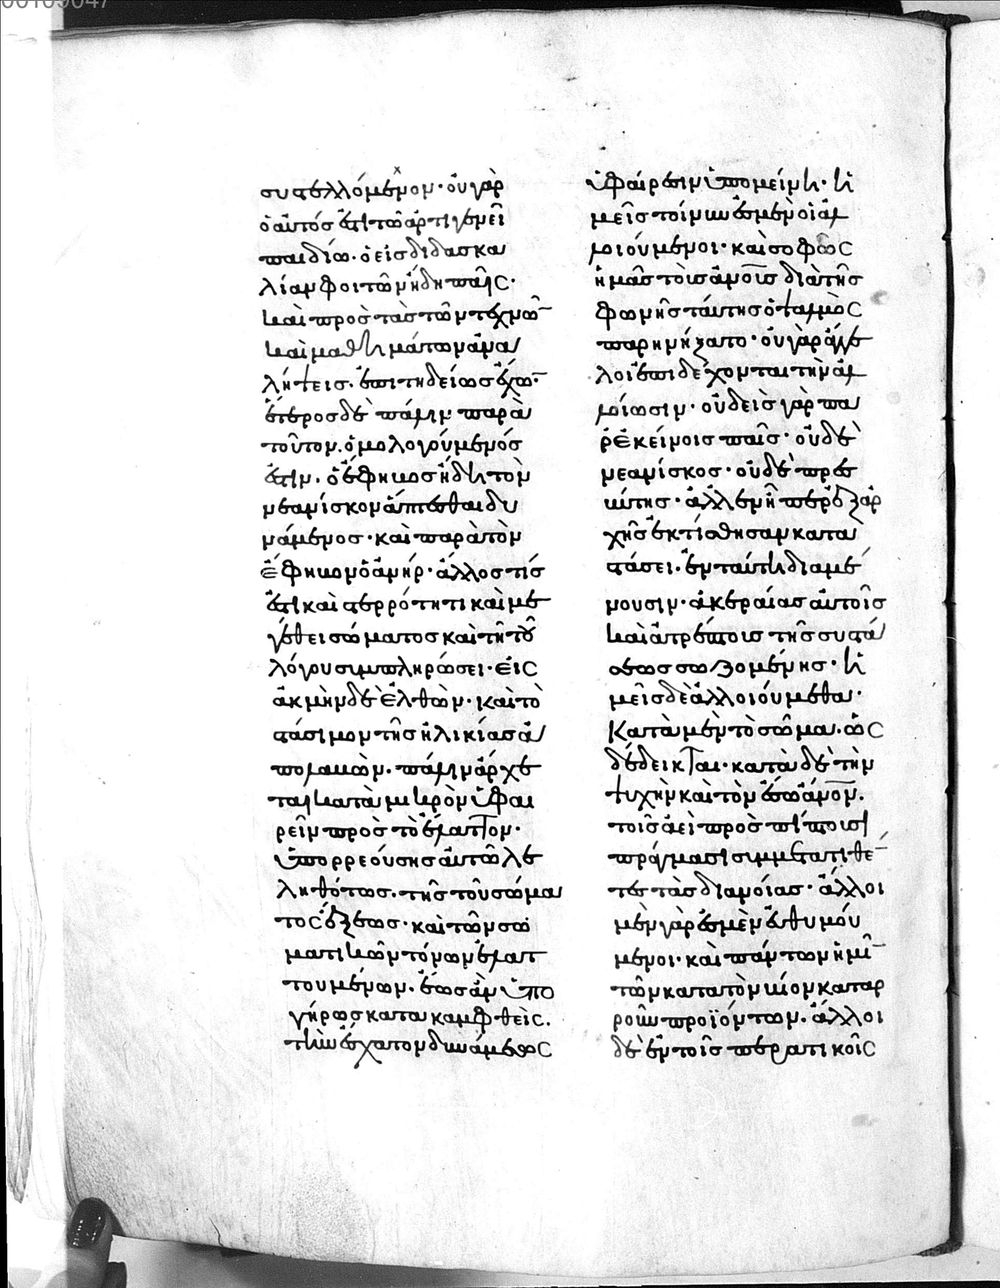 συστελλόμενον· οὐ γὰρ
ὁ αὐτός ἐστι τῶ ἀρτιγενεῖ
παιδίω· ὁ εἰς διδασκα
λίαν φοιτῶν ἤδη παῖς·
καὶ πρὸς τὰς τῶν τεχνῶ
καὶ μαθημάτων ἀνα
λήψεις· ἐπιτηδείως ἔχω·
ἕτερος δὲ πάλιν παρὰ
τοῦτον· ὁμολογούμενός
ἐστιν· ὁ ἔφηβος ἤδη τὸν
νεανίσκον ἅπτεσθαι δυ
νάμενος· καὶ παρὰ τὸν
ἔφηβον ὁ ἀνήρ· ἄλλος τίς
ἐστι καὶ στερρότητι καὶ με
γέθει σώματος καὶ τῆ τοῦ
λόγου συμπληρώσει· εἰς
ἀκμὴν δὲ ἐλθὼν· καὶ τὸ
στάσιμον τῆς ἡλικίας ἀ
πολαβὼν· πάλιν ἄρχε
ται κατὰ μικρὸν ὑφαι
ρεῖν πρὸς τὸ ἔλαττον·
ὑπορρεούσης αὐτῶ λε
ληθότως· τῆς τοῦ σώμα
τος ἕξεως· καὶ τῶν σω
ματικῶν τόνων ἐλατ
τουμένων· ἕως ἂν ὑπὸ
γήρως κατακαμφθεὶς·
τὴν ἐσχάτην δυνάμεως
ὑφαίρεσιν ὑπομείνη· ἡ
μεῖς τοίνυν ἐσμὲν οἱ ἀλ
λοιούμενοι· καὶ σοφῶς
ἡμᾶς τοὺς ἀνους διὰ τῆς
φωνῆς ταύτης ὁ ψαλμὸς
παρηνίξατο· οὐ γὰρ ἄγγε
λοι ἐπιδέχονται τὴν ἀλ
λοίωσιν· οὐδεὶς γὰρ πα
ρ ἐκείνοις παῖς· οὐδὲ
νεανίσκος· οὐδὲ πρεσ
βύτης· ἀλλ ἐν ἧπερ ἐξ ἀρ
χῆς ἐκτίσθησαν κατα
στάσει· ἐν ταύτη διαμέ
νουσιν· ἀκεραίας αὐτοῖς
καὶ ἀτρέπτου τῆς συστά
σεως σωζομένης· ἡ
μεῖς δὲ ἀλλοιούμεθα·
Κατὰ μὲν τὸ σῶμα· ὡς
δέδεικται· κατὰ δὲ τὴν
ψυχὴν καὶ τὸν ἔσω ἀνον·
τοῖς ἀεὶ προσπίπτουσι
πράγμασι συμμετατιθέ
τες τὰς διανοίας· ἄλλοι
μὲν γὰρ ἐσμὲν εὐθυμού
μενοι· καὶ πάντων ἡμῖ
τῶν κατὰ τὸν βίον κατὰ ρ
ροῦν προϊόντων· ἄλλοι
δὲ ἐν τοῖς περατικοῖς